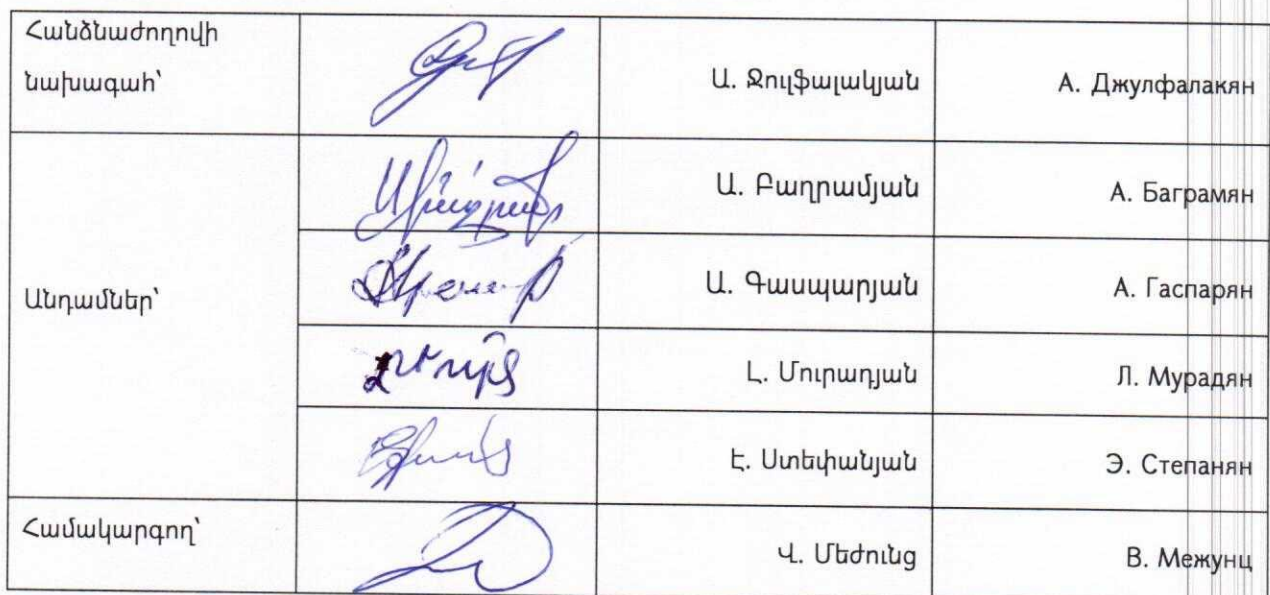 Հանձնաժողովի
նախագահ՝
Ա. Ջուլֆալակյան А. Джулфалакян
Ա. Բաղրամյան А. Баграмян
Անդամներ՝ Ա. Գասպարյան А. Гаспарян
Լ. Մուրադյան Л. Мурадян
Է. Ստեփանյան Э. Степанян
Համակարգող՝ Վ. Մեժունց В. Межунц